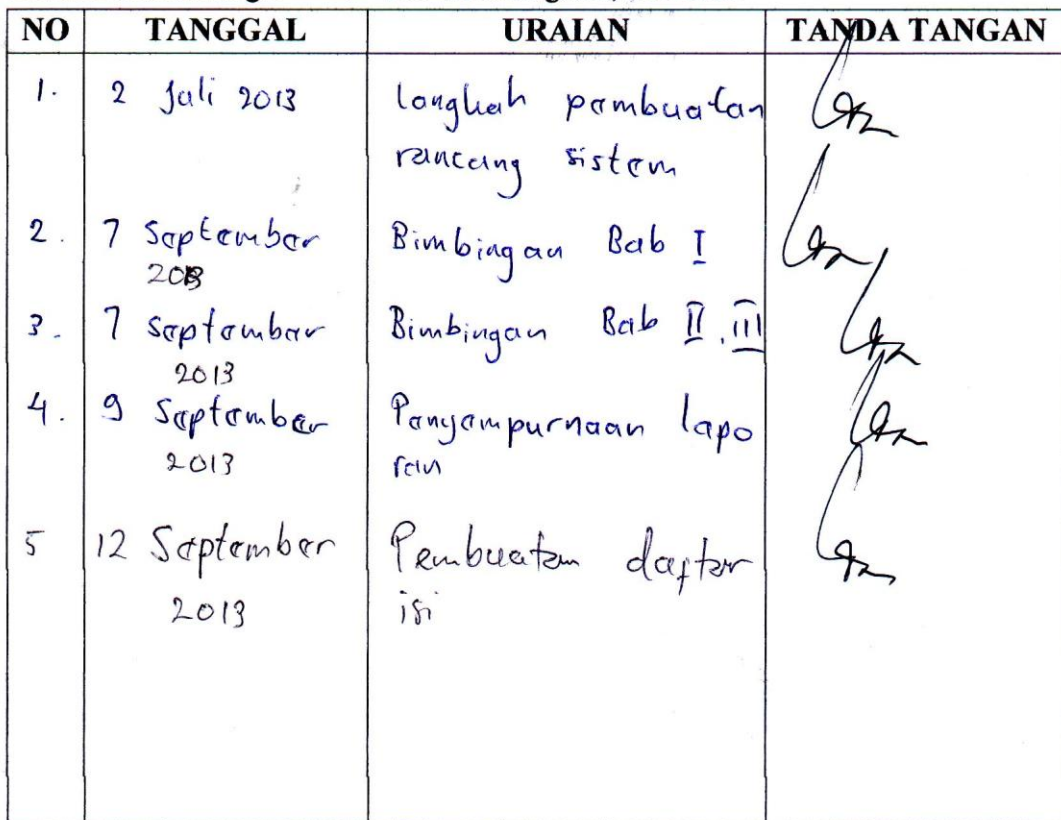 NO TANGGAL URAIAN TANDA TANGAN
1. 2 Juli 2013 Langkah pembuatan
rancang sistem
2. 7 September Bimbingan Bab I
2013
3. 7 September Bimbingan Bab II, III
2013
4. 9 September Penyempurnaan lapo
2013 ran
5 12 September Pembuatan daftar
2013 isi